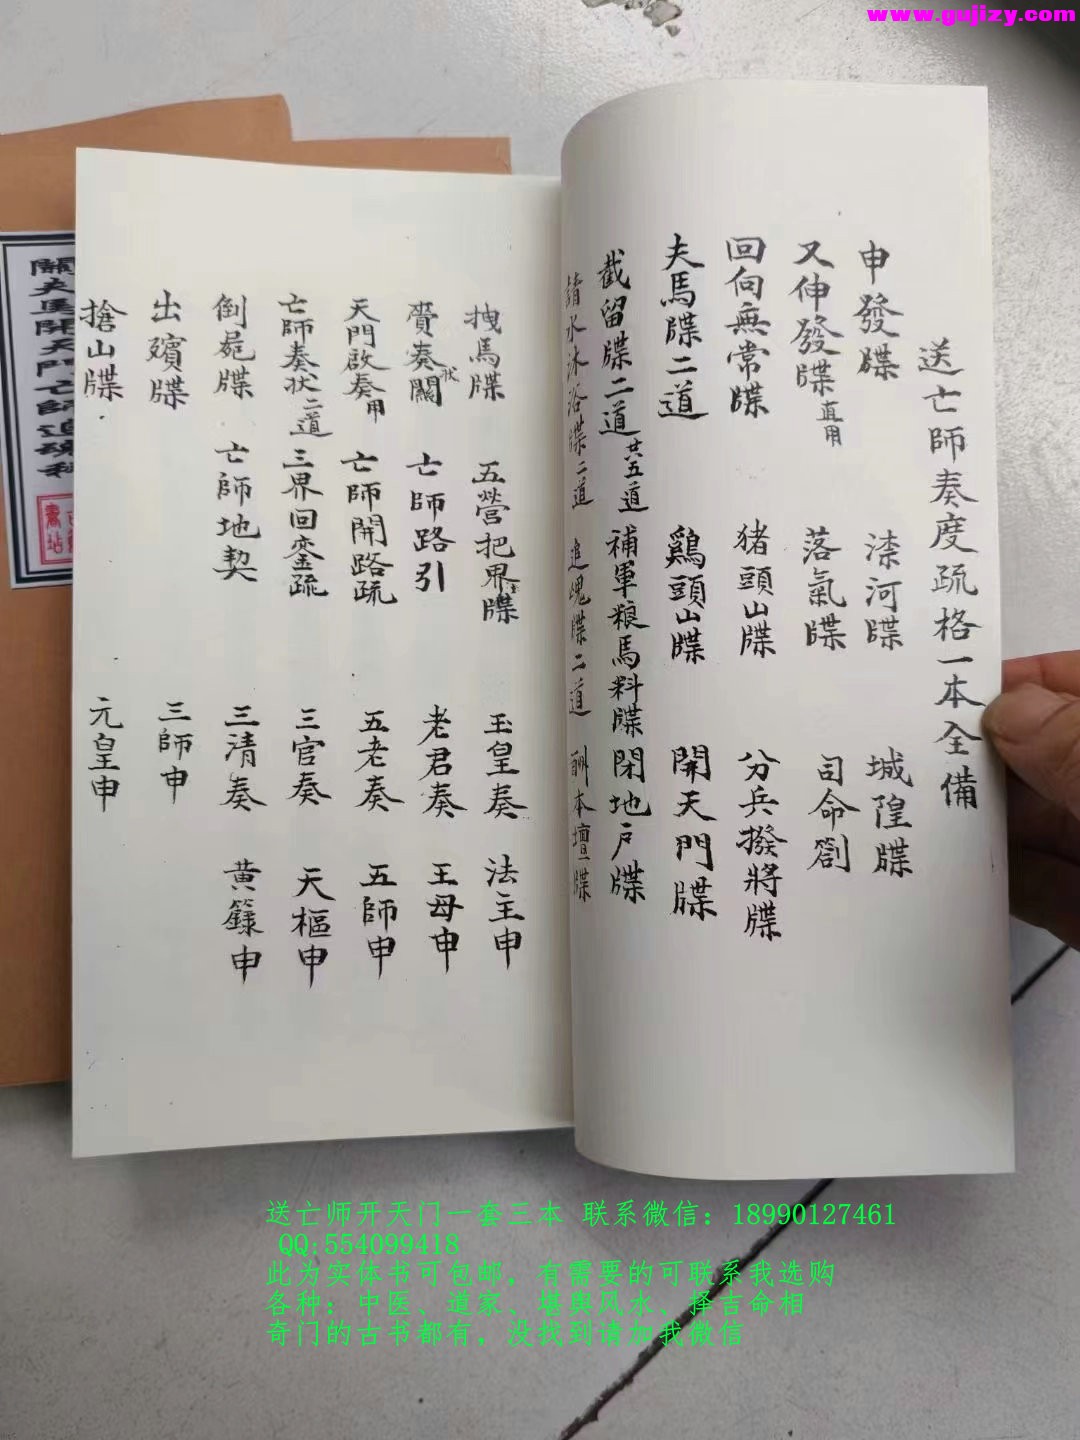 www.gujizy.com
送亡師奏度疏格一本全備
申發牒 滦河牒 城隍牒
又伸發牒直用 落氣牒 司命劄
回向無常牒 猪頭山牒 分兵撥將牒
夫馬牒二道 鷄頭山牒 開天門牒
截留牒二道共五道 補軍粮馬料牒 閉地户牒
請水沐浴牒二道 追魂牒二道 酬本壇牒
拽馬牒 五營把界牒 玉皇奏 法主申
賫奏關状 亡師路引 老君奏 王母申
天門啟奏用 亡師開路疏 五老奏 五師申
亡師奏状二道 三界回銮疏 三官奏 天樞申
倒屍牒 亡師地契 三清奏 黄籙申
出殯牒 三師申
搶山牒 元皇申
關夫馬開天門亡師追魂科
送亡师开天门一套三本 联系微信：18990127461
QQ:554099418
此为实体书可包邮，有需要的可联系我选购
各种：中医、道家、堪舆风水、择吉命相
奇门的古书都有，没找到请加我微信